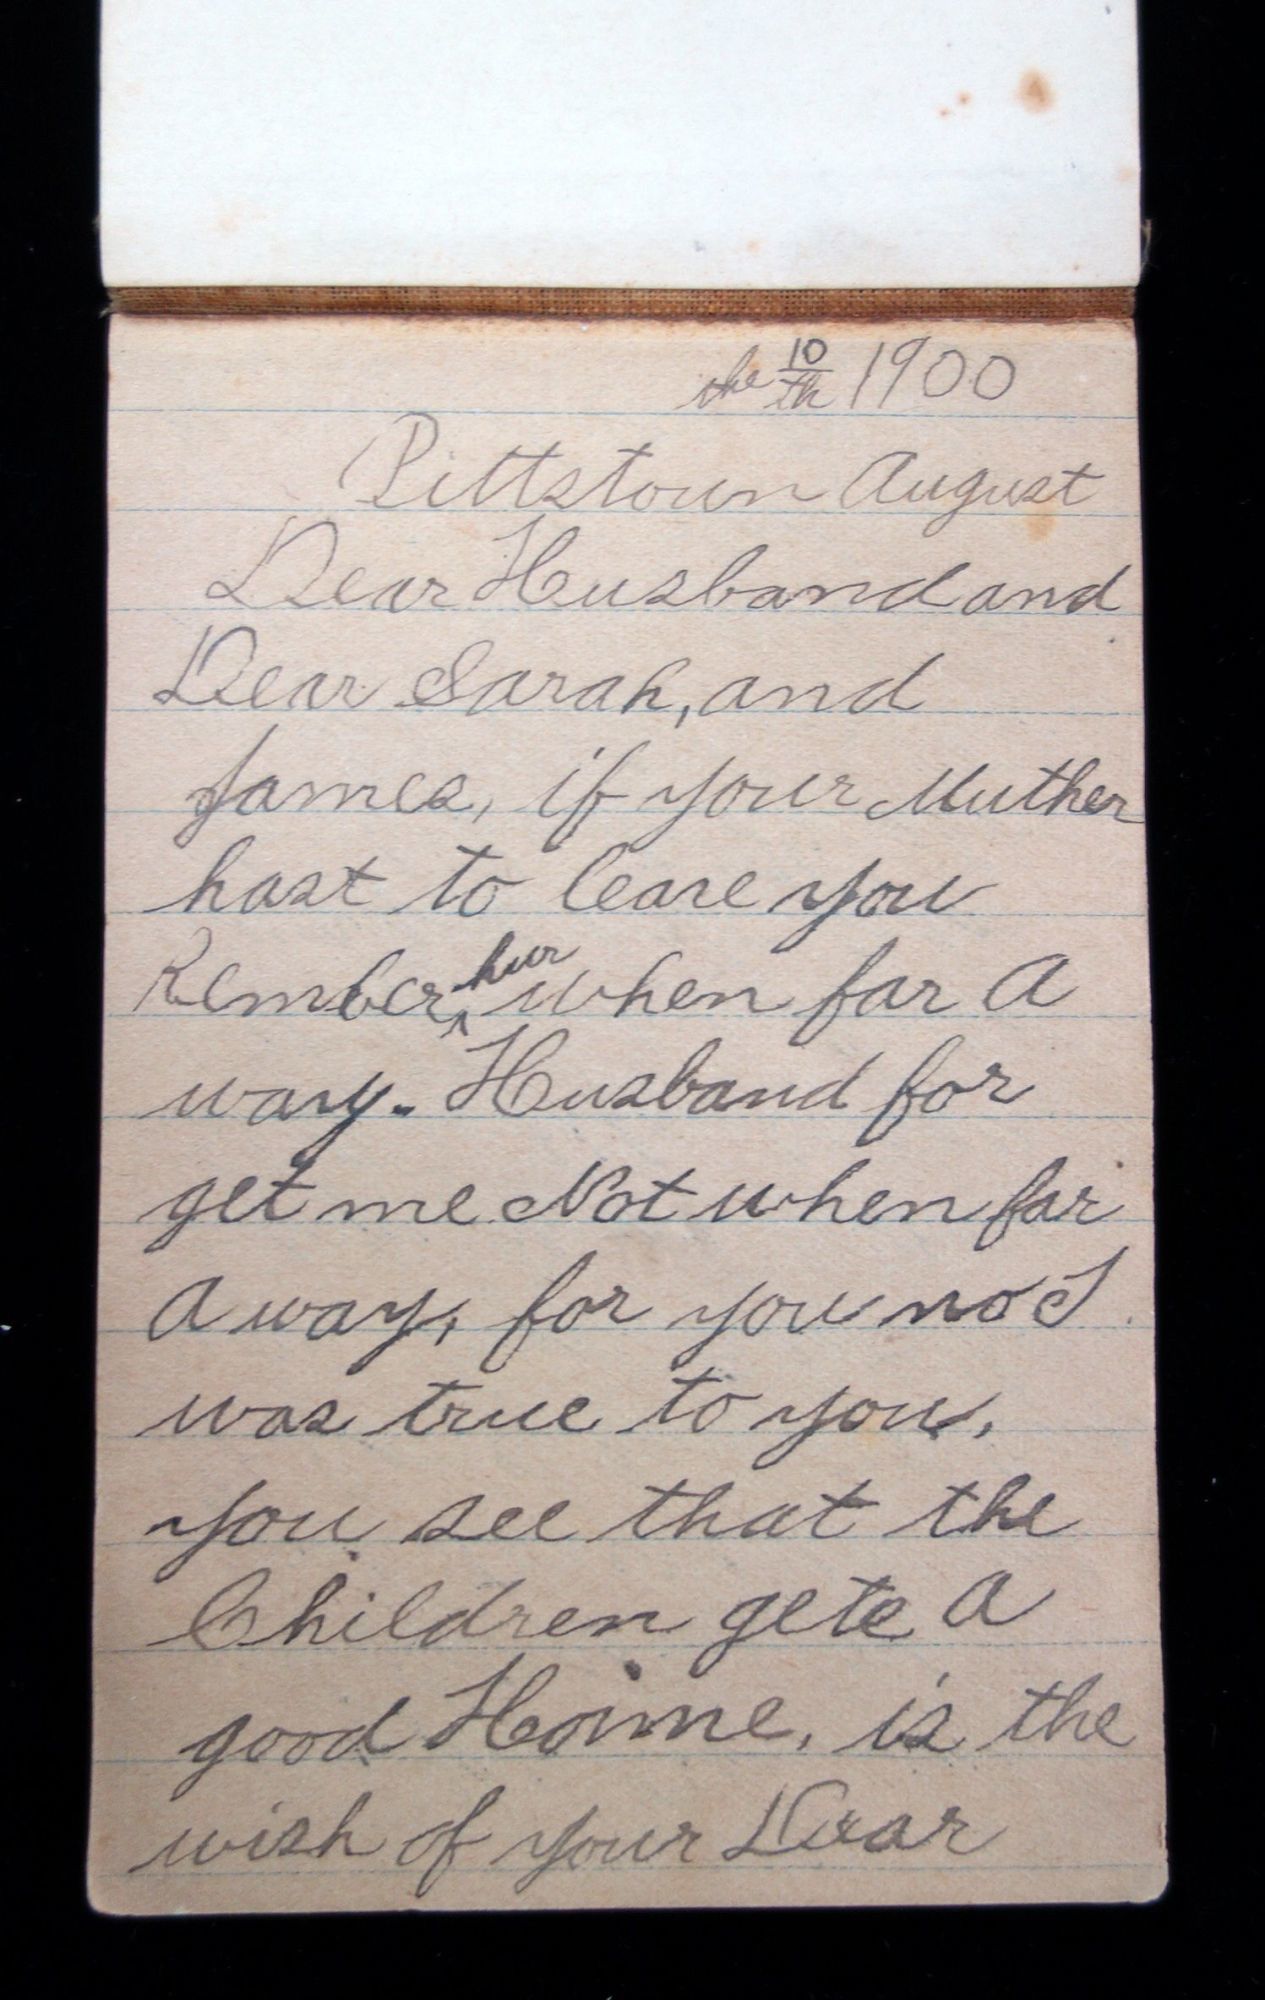 the 10th 1900
Pittstown August
Dear Husband and
Dear Sarah, and
James, if your Muther
hast to leave you
Rember hur when far A
way. Husband for
get me Not when far
A way, for you no I
was true to you,
you see that the
Children gete A
good Home, is the
wish of your Dear